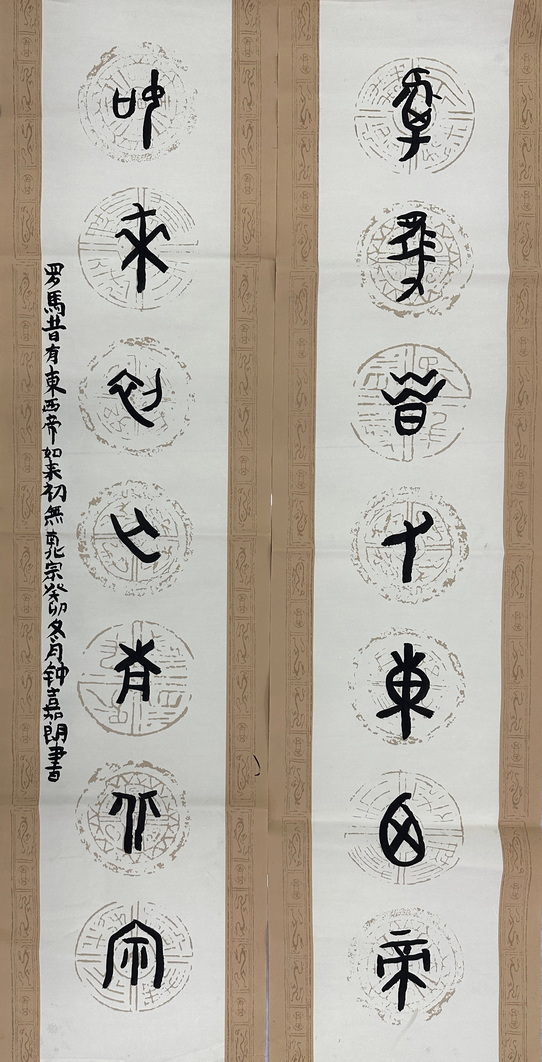 羅馬昔有東西帝
如來初無南北宗
罗馬昔有東西帝如来初無南北宗癸卯冬月钟嘉朗書